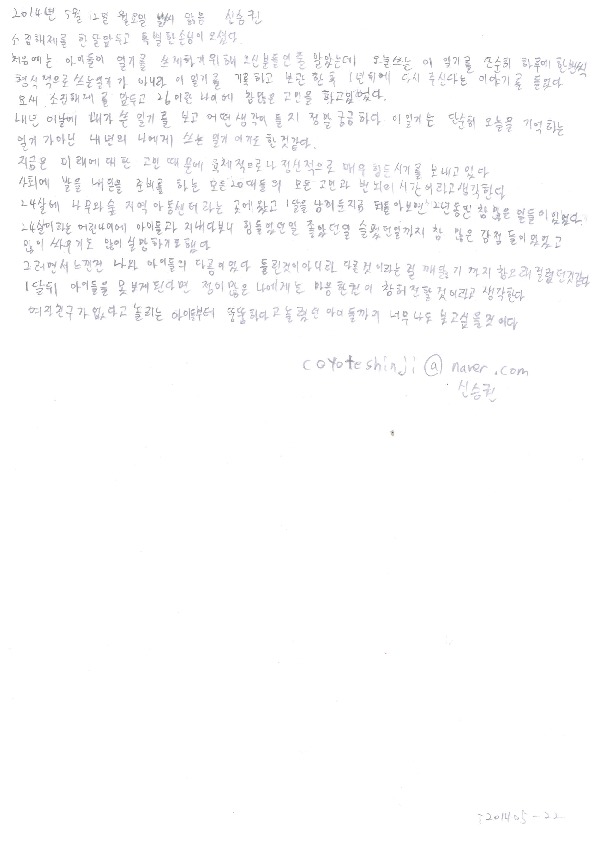 2014년 5월 12월 월요일 날씨 맑음 신승권
소집해제를 한달앞두고 특별한손님이 오셨다.
처음에는 아이들이 일기를 쓰게하기위해 오신분들인줄 알았는데 오늘쓰는 이 일기를 단순히 하루에 한번씩
형식적으로 쓰는일기가 아니라 이 일기를 기록하고 보관 한 후 1년뒤에 다시 주신다는 이야기를 들었다
요새 소집해제를 앞두고 26이란 나이에 참많은 고민을 하고있었다.
내년 이맘때 내가 쓴 일기를 보고 어떤생각이 들지 정말 궁금하다. 이일기는 단순히 오늘을 기억하는
일기가아닌 내년의 나에게 쓰는 일기 이기도 한것같다.
지금은 미래에 대한 고민 때문에 육체적으로나 정신적으로 매우 힘든시기를 보내고 있다
사회에 발을 내딛을 준비를 하는 모든 20대들의 모든 고민과 번뇌에 시간이라고생각한다
24살에 나무와숲 지역아동센터라는 곳에왔고 1달을 남겨둔지금 되돌아보면 2년동안 참 많은 일들이 있었다.
24살이라는 어린나이에 아이들과 지내다보니 힘들었던일 즐거웠던일 슬펐던일까지 참 많은 감정 들이 있었고
많이 싸우기도 많이 실망하기도했다
그러면서 느낀건 나와 아이들의 다름이었다 틀린것이아니라 다른 것 이라는 걸 깨닫기 까지 참오래걸렸던것같다
1달뒤 아이들을 못보게된다면 정이많은 나에게는 마음한켠이 참허전할것이라고 생각한다
여자친구가 없다고 놀리는 아이들부터 뚱뚱하다고 놀렸던 아이들까지 너무나도 보고싶을것 이다
coyoteshinji@naver.com
신승권
:201405-22